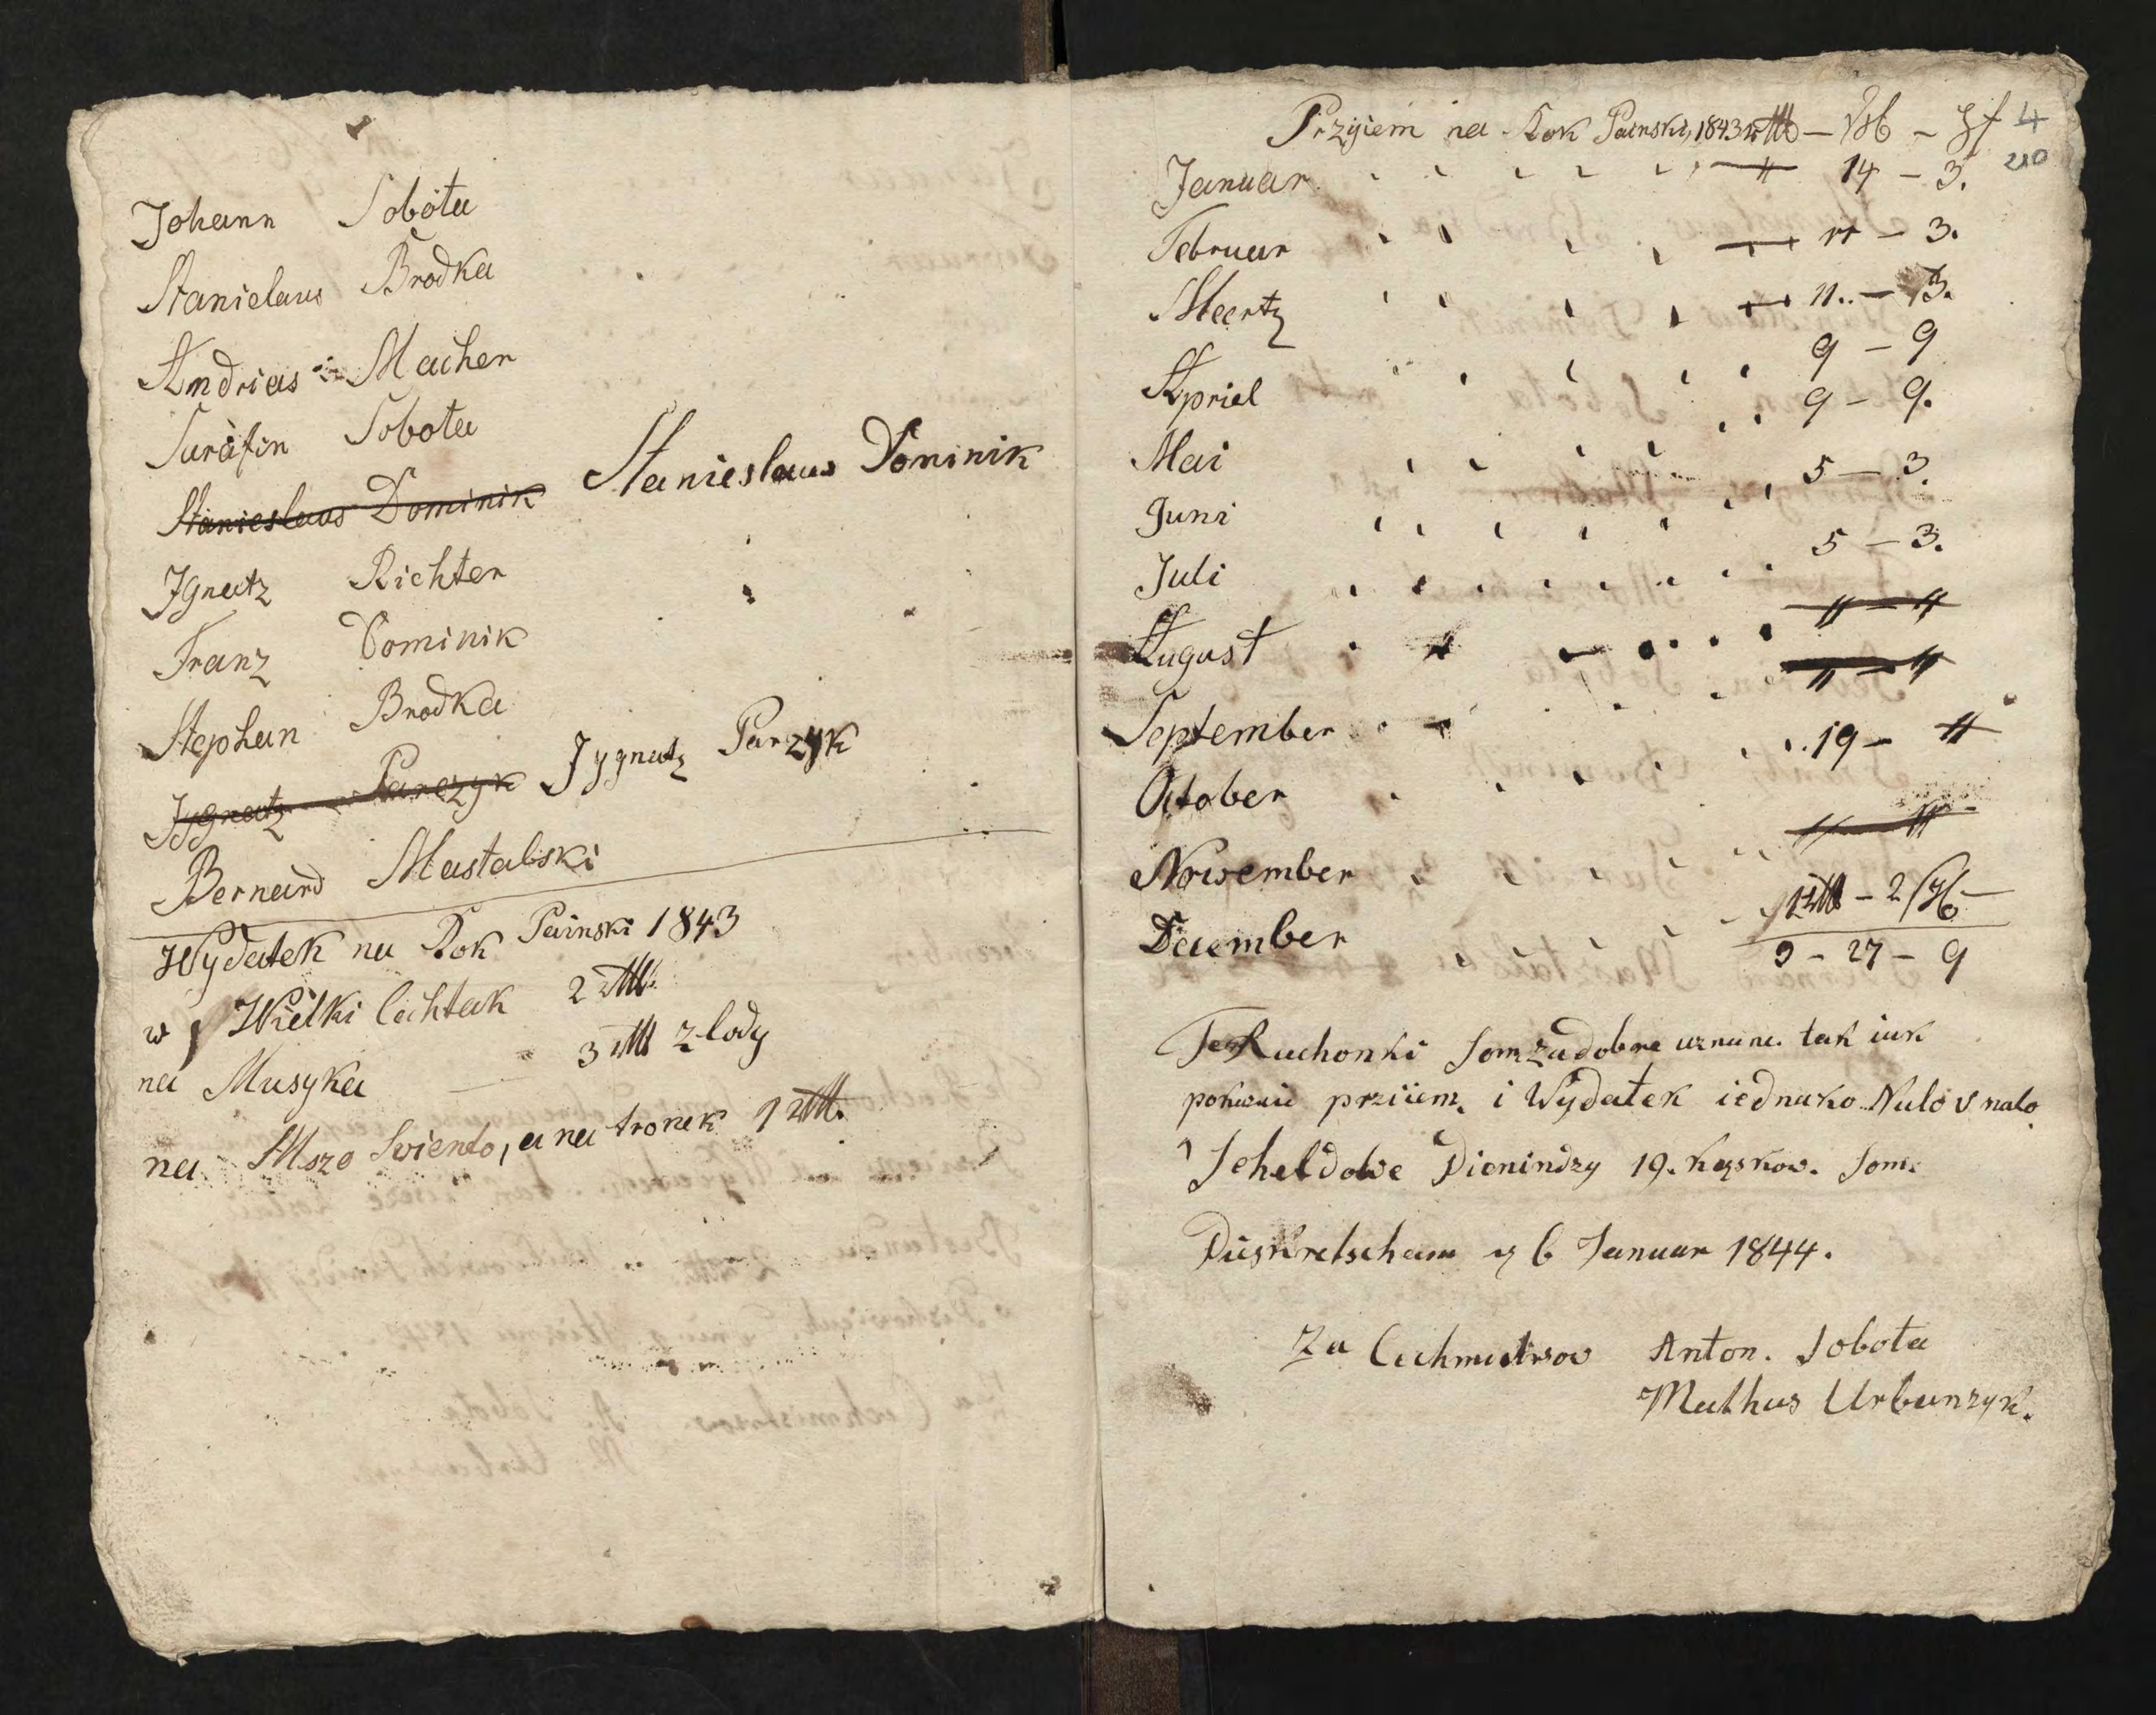 Johann Sobota
Stanielaus Brodka
Andrias Macher
Surafin Sobota
Stanieslaus Dominik Stanieslaus Dominik
Ignatz Richter
Franz Dominik
Stephan Brodka
Jygnatz Parczyk Jygnatz Parzyk
Bernard Mastalski
Wydatek na Rok Painski 1843
w Wielki Cechtak 2
na Musyka 3 zlody
na Mszo Swiento, a na tronek 1
Przyiem na Rok Painski, 1843
4
210
Januar 14 - 3.
Februar 11 - 3.
Meertz 11.. - 3.
Apriel 9 - 9
Mai 9 - 9.
Juni 5 - 3.
Juli 5 - 3.
August
September
October 19 -
November
December - 2
9 - 27 - 9
Te Rachonki som za dobre uznane tak iak
pokazuie prziiem. i Wydatek iednako Nalo v nalo
Scheldowe Pienindzy 19. kęskow. som.
Pieskretscham 6 Januar 1844.
Za Cechmistrow Anton. Sobota
Mathus Urbanzyk.